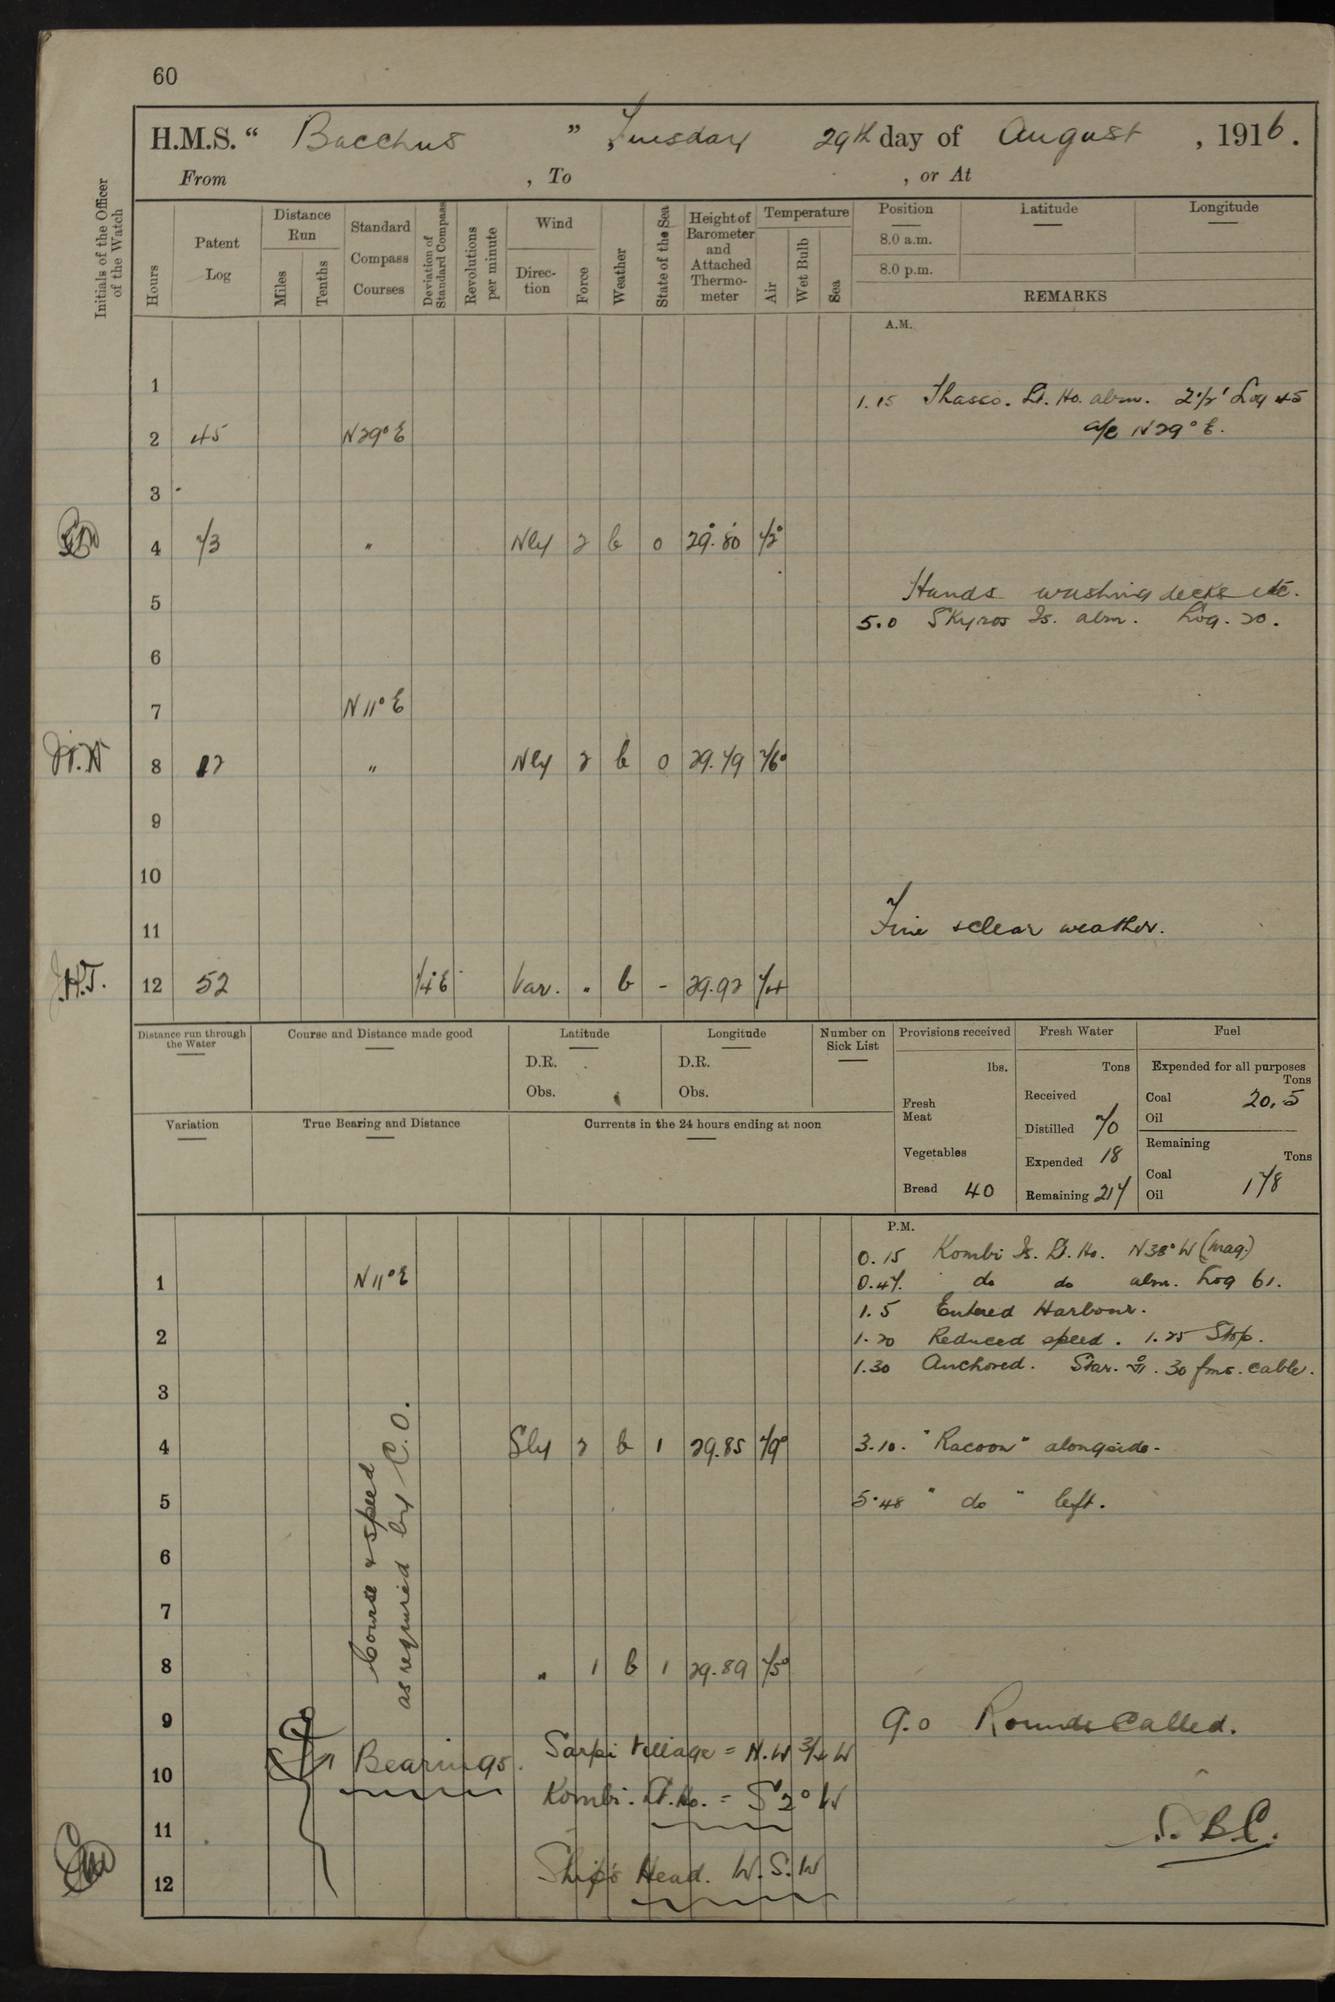 60
H.M.S. “ Bacchus ” , Tuesday 29th day of August , 1916 .
From , To , or At
Initials of the Officer of the Watch
Hours
Patent Log
Distance Run
Miles
Tenths
Standard Compass Courses
Deviation of Standard Compass
Revolutions per minute
Wind
Direction
Force
Weather
State of the Sea
Height of Barometer and Attached Thermometer
Temperature
Air
Wet Bulb
Sea
Position Latitude Longitude
8.0 a.m.
8.0 p.m.
REMARKS
A.M.
1
1.15 Lt. Ho. abm. 2½' Log 45
a/c N29°E.
2 45 N29°E
3
4 73 „ Nly 2 b 0 29.80 72°
Hands washing decks etc.
5
5.0 Skyros Is. abm. Log. 20.
6
7 N11°E
8 12 „ Nly 2 b 0 29.79 76°
9
10
11 Fine & clear weather.
J.H.T. 12 52 ¼°E Var. „ b - 29.92 74
Distance run through the Water
Course and Distance made good
Latitude
D.R.
Obs.
Longitude
D.R.
Obs.
Number on Sick List
Provisions received
lbs.
Fresh Meat
Vegetables
Bread 40
Fresh Water
Tons
Received
Distilled 70
Expended 18
Remaining 217
Fuel
Expended for all purposes
Tons
Coal 20.5
Oil
Remaining
Tons
Coal 178
Oil
Variation
True Bearing and Distance
Currents in the 24 hours ending at noon
P.M.
0.15 Kombi Is. Lt. Ho. N38°W (mag.)
1 N11°E
0.47. do do abm. Log 61.
1.5 Entered Harbour.
2
1.20 Reduced speed. 1.25 Stop.
3
1.30 Anchored. Star. 30 fms. cable.
Course & speed
as required by C.O.
4 Sly 2 b 1 29.85 79°
3.10. "Racoon" alongside.
5
5.48 " do " left.
6
7
8 „ 1 b 1 29.89 75°
9
9.0 Rounds Called.
10
Bearings. Sarpi Village = N.W ¾ W
Kombi. Lt. Ho. = S 2° W
11
Ship's Head. W.S.W
12